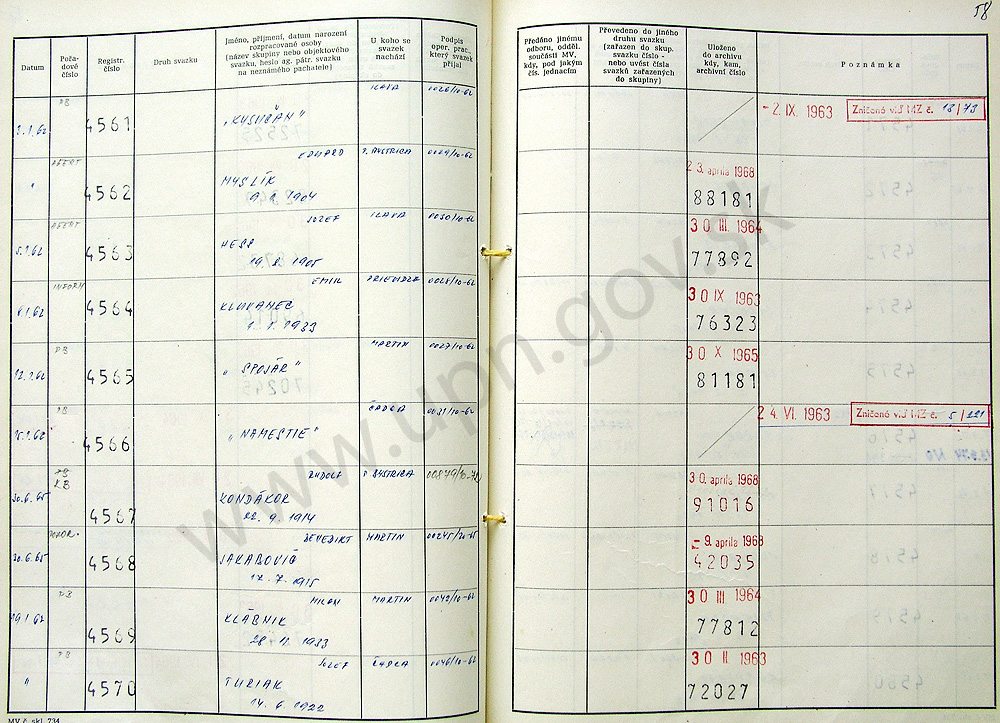 58
Datum
Pořadové číslo
Registr. číslo
Druh svazku
Jméno, příjmení, datum narození
rozpracované osoby
(název skupiny nebo objektového
svazku, heslo ag. pátr. svazku
na neznámého pachatele)
U koho se
svazek
nachází
Podpis
oper. prac.,
který svazek
přijal
Předáno jinému
odboru, odděl.
součásti MV,
kdy, pod jakým
čís. jednacím
Převedeno do jiného
druhu svazku
(zařazen do skup.
svazku číslo -
nebo uvést čísla
svazků zařazených
do skupiny)
Uloženo
do archivu
kdy, kam,
archivní číslo
Poznámka
PB
4561
ILAVA
0026/10-62
- 2. IX. 1963
Zničené viď MZ č. 18/73
4562
EDUARD
MYSLÍK
P. BYSTRICA
0029/10-62
23. apríla 1968
88181
4563
JOZEF
HESS
19. 2. 1905
ILAVA
0030/10-62
30 III. 1964
77892
INFORM
4564
EMIL
KLUVANEC
1. 1. 1933
PRIEVIDZA
0028/10-62
30 IX 1963
76323
PB
4565
„SPOJÁR"
MARTIN
0027/10-62
30 X 1965
81181
PB
4566
„NAMESTIE"
ČADCA
0031/10-62
24. VI. 1963
Zničené viď MZ č. 5/221
30.6.65
PB
KB
4567
RUDOLF
KONDÁKOR
22. 9. 1914
P. BYSTRICA
30. apríla 1968
91016
30.6.65
4568
BENEDIKT
JAKABOVIČ
17. 7. 1915
MARTIN
00245/20-65
- 9. apríla 1968
42035
PB
4569
MILAN
KLÁBNIK
MARTIN
0042/10-62
30 III 1964
77812
"
PB
4570
JOZEF
TURIAK
14. 6. 1922
ČADCA
0046/10-62
30 II 1963
72027
MV č. skl. 734
www.upn.gov.sk